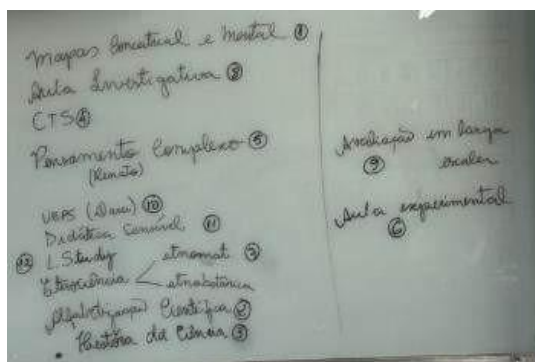 Mapas Conceitual e Mental ①
Aula Investigativa ⑧
CTS ④
Pensamento Complexo ⑤
(Renato)
UEPS (Darci) ⑩
Didática Sensível ⑪
⑫ L. Study
Etnociência etnomat ⑦
etnobotânica
Alfabetização Científica ②
• História da Ciência ③
Avaliação em larga
⑨ escala
Aula experimental
⑥